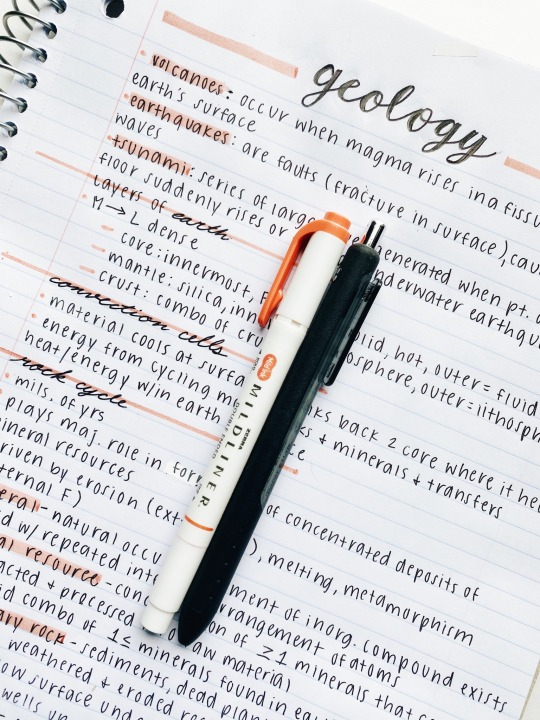 geology
volcanoes: occur when magma rises in a fissu
earth's surface
earthquakes: are faults (fracture in surface), cau
waves
tsunami: series of large generated when pt. o
floor suddenly rises or underwater earthqu
layers of earth
M → L dense
core: innermost, solid, hot, outer = fluid
mantle: silica, inn osphere, outer = lithosph
crust: combo of cru
convection cells
material cools at surfa ks back 2 core where it hea
energy from cycling ma ks & minerals & transfers
heat/energy w/in earth ce
rock cycle
mils. of yrs
plays maj. role in for of concentrated deposits of
ineral resources
riven by erosion (ext ), melting, metamorphism
ternal F)
eral - natural occu ment of inorg. compound exists
d w/ repeated inte rrangement of atoms
al resource - con on of ≥1 minerals that ca
acted & processed raw material
d combo of 1≤ minerals found in ea
ary rock - sediments, dead plan
weathered & eroded
ow surface und
wells
ZEBRA
MILDLINER
DOUBLE ENDED